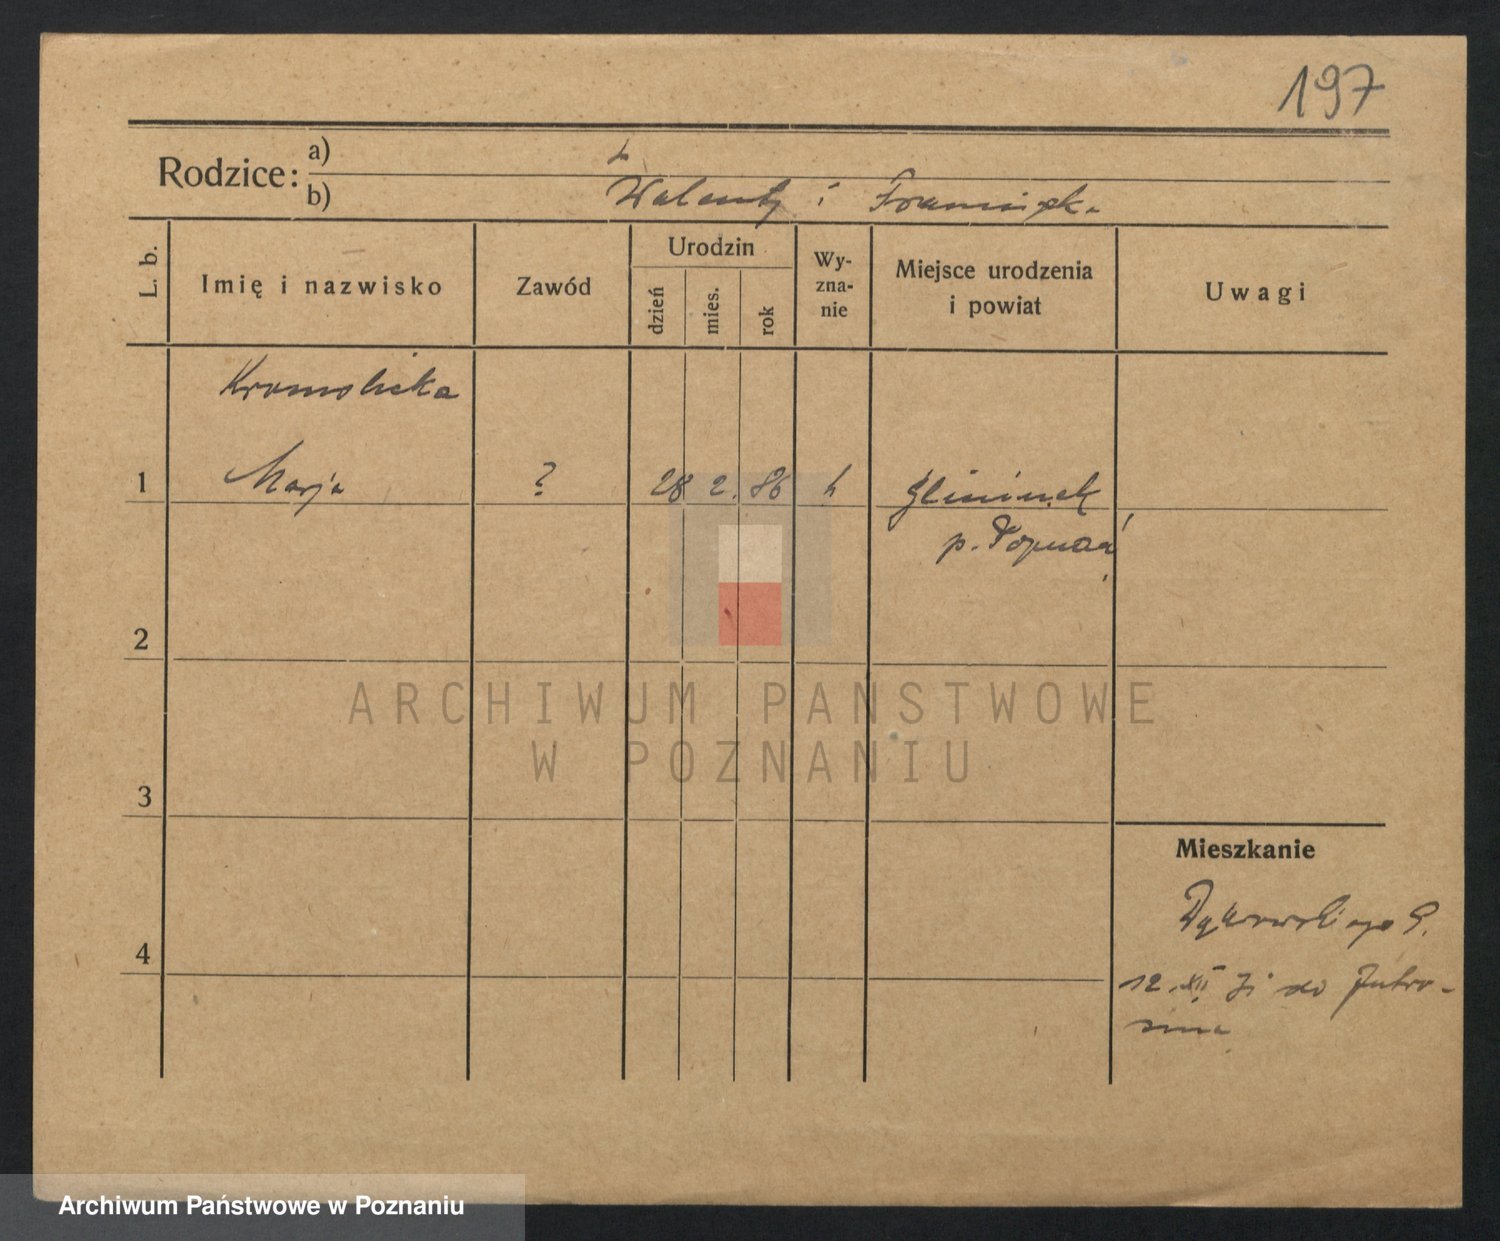 197
Rodzice: a)
b) Walenty i Franciszka
L. b.
Imię i nazwisko
Zawód
Urodzin
dzień
mies.
rok
Wy-
zna-
nie
Miejsce urodzenia
i powiat
Uwagi
Kromolicka
1 Marja ? 28 2. 86
p. Poznań
2
ARCHIWUM PANSTWOWE
W POZNANIU
3
Mieszkanie
4
12. XII do Jutro-
sina
Archiwum Państwowe w Poznaniu